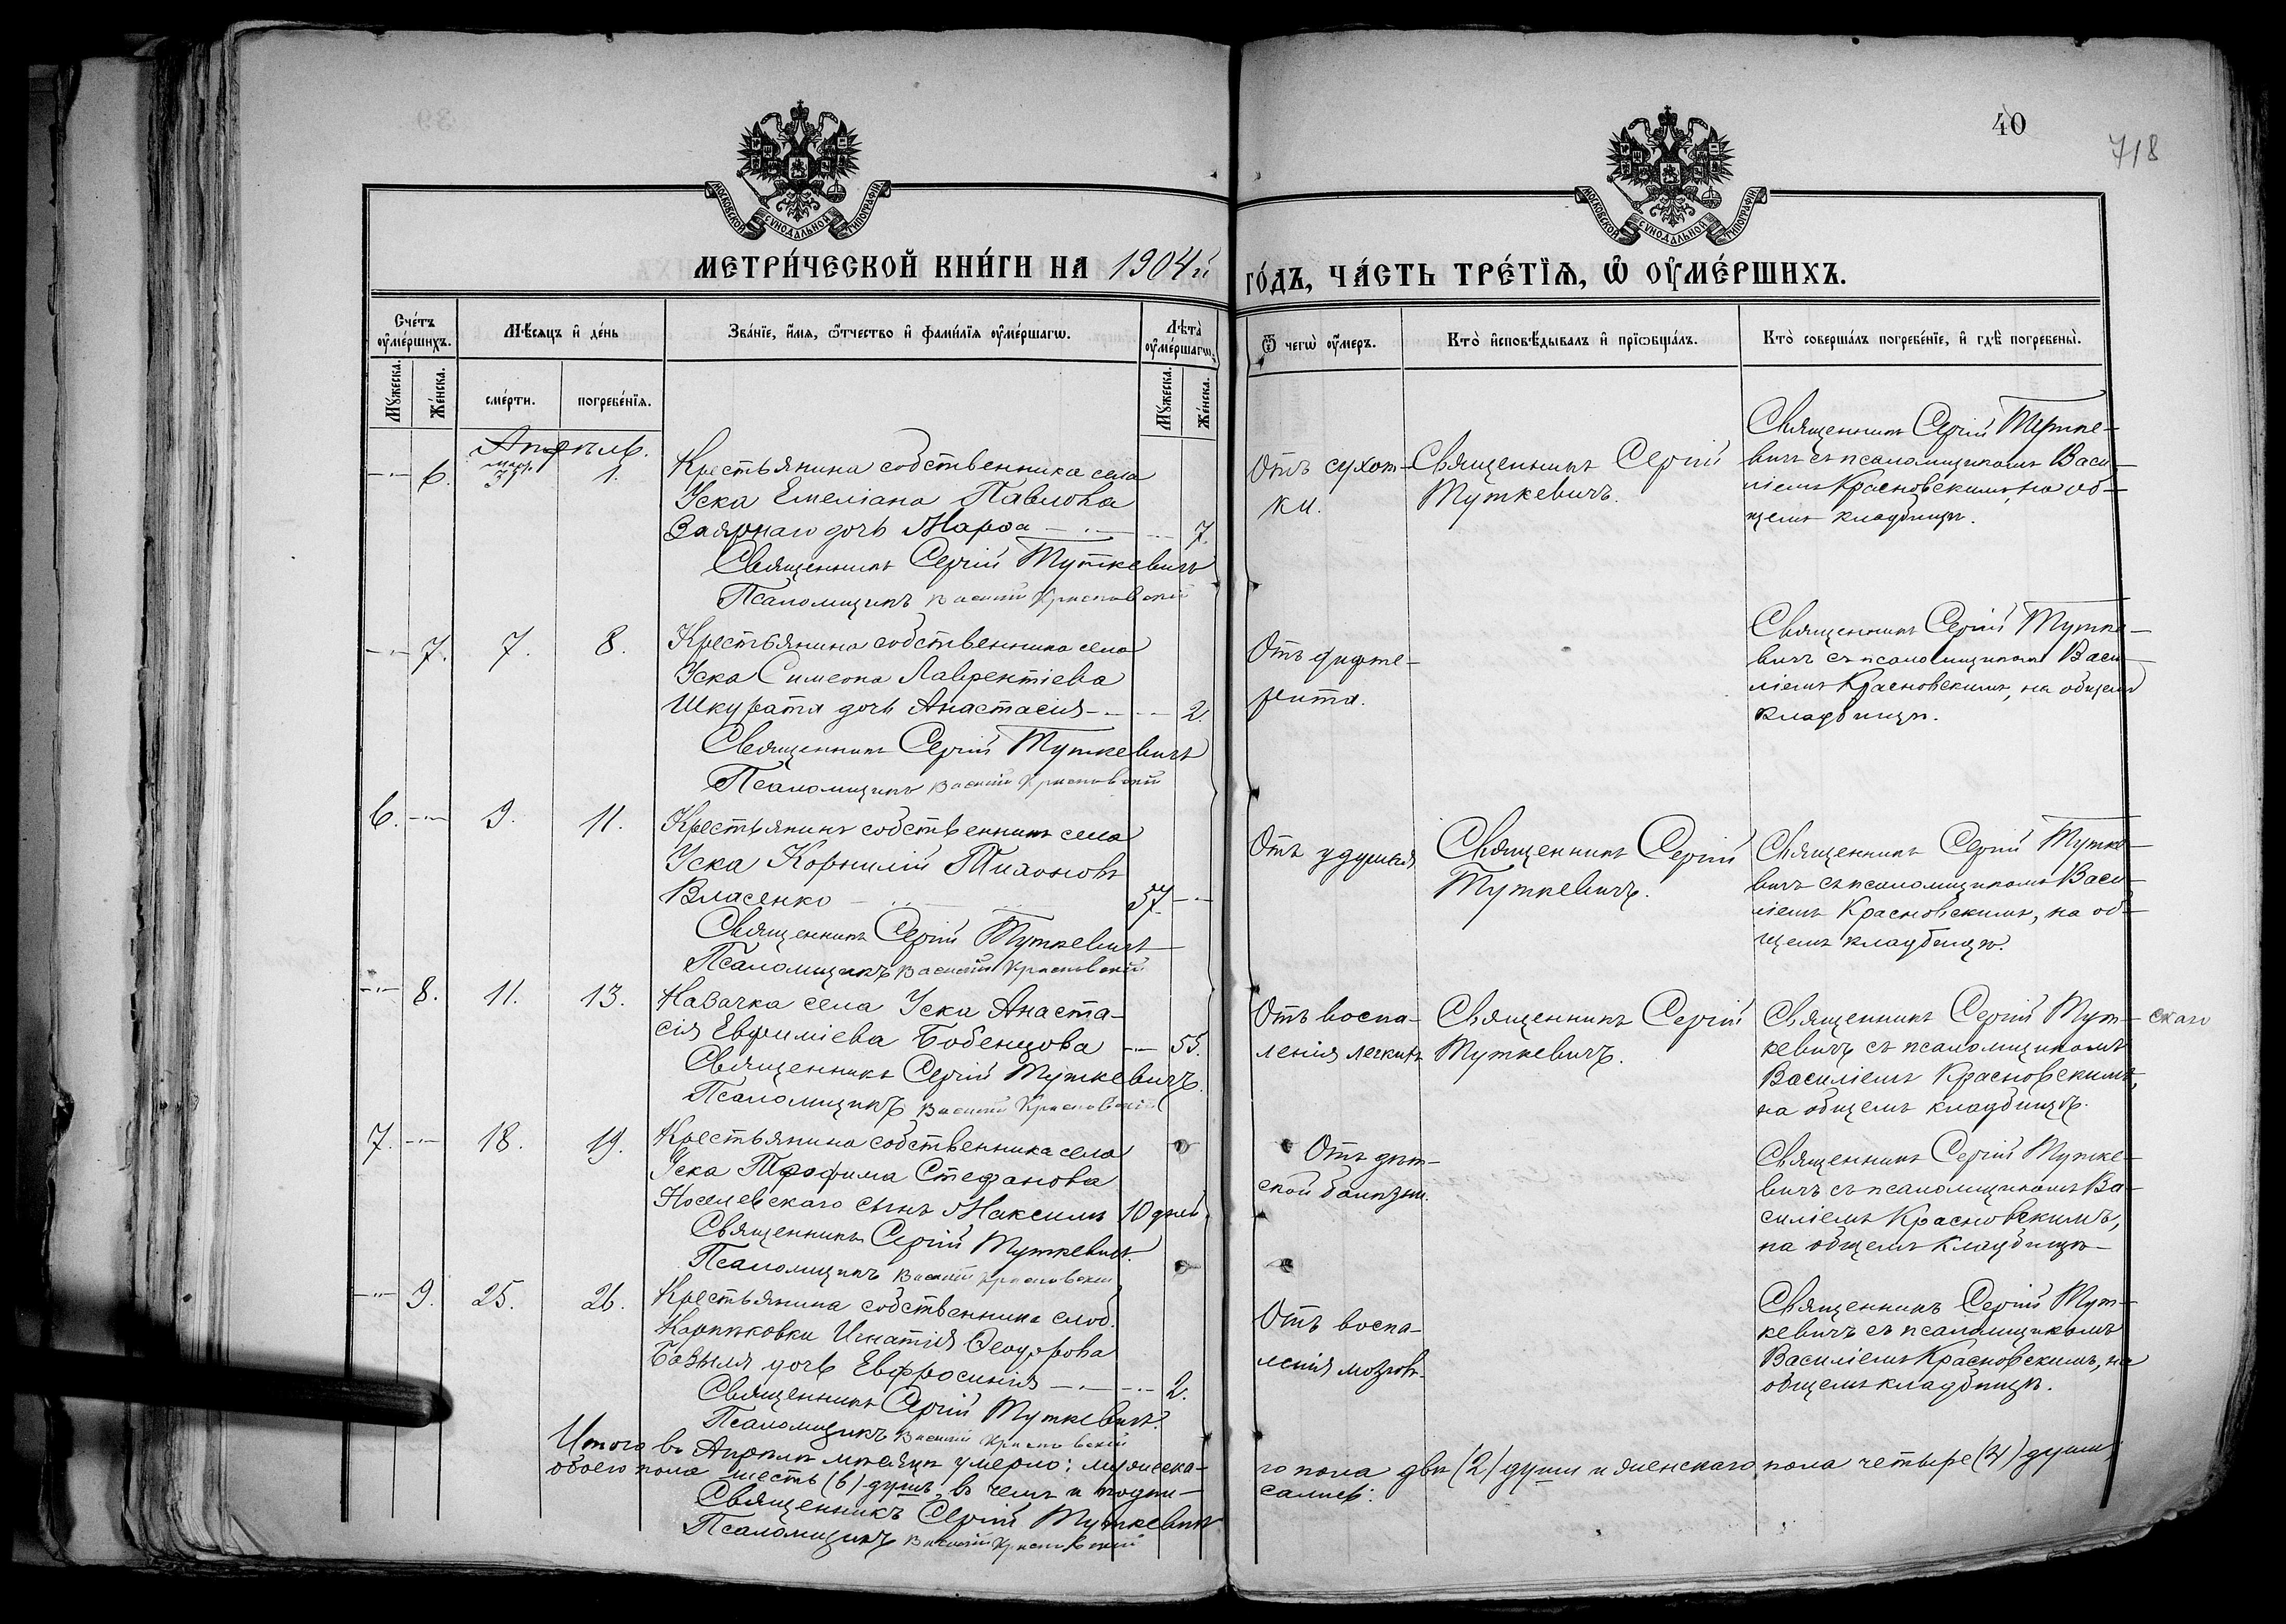 40
718
МОСКОВСКОЙ СУНОДАЛЬНОЙ ТИПОГРАФІИ
МОСКОВСКОЙ СУНОДАЛЬНОЙ ТИПОГРАФІИ
МЕТРИ́ЧЕСКОЙ КНИ́ГИ НА 1904й
ГО́ДЪ, ЧА́СТЬ ТРЕ́ТІѦ, Ѡ҆ ОУ҆МЕ́РШИХЪ.
Сче́тъ оу҆ме́ршихъ.
Мꙋ́жеска.
Же́нска.
Мѣ́сяцъ и҆ де́нь
сме́рти.
погребе́нїѧ.
Зва́нїе, и҆́мѧ, ѻ҆́тчество и҆ фами́лїѧ оу҆ме́ршагѡ.
Лѣ́та оу҆ме́ршагѡ.
Мꙋ́жеска.
Же́нска.
Ѿ чегѡ̀ оу҆́меръ.
Кто̀ и҆сповѣ́дывалъ и҆ прїѡбща́лъ.
Кто̀ соверша́лъ погребе́нїе, и҆ гдѣ̀ погребены̀.
Апрѣль.
—„— 6. Март. 31 1.
Крестьянина собственника села
Уска Емеліана Павлова
Заярнаго дочь Марфа — 7.
Священникъ Сергій Туткевичъ
Псаломщикъ Василій Красновскій
Отъ сухот-
ки.
Священникъ Сергій
Туткевичъ.
Священникъ Сергій Тутке-
вичъ съ псаломщикомъ Васи-
ліемъ Красновскимъ, на об-
щемъ кладбищѣ.
—„— 7. 7. 8.
Крестьянина собственника села
Уска Симеона Лаврентіева
Шкурата дочь Анастасія — 2.
Священникъ Сергій Туткевичъ
Псаломщикъ Василій Красновскій
Отъ дифте-
рита.
Священникъ Сергій Тутке-
вичъ съ псаломщикомъ Васи-
ліемъ Красновскимъ, на общемъ
кладбищѣ.
6. —„— 9. 11.
Крестьянинъ собственникъ села
Уска Корнилій Тихоновъ
Власенко — 57. —„—
Священникъ Сергій Туткевичъ
Псаломщикъ Василій Красновскій
Отъ удушья
Священникъ Сергій
Туткевичъ.
Священникъ Сергій Тутке-
вичъ съ псаломщикомъ Васи-
ліемъ Красновскимъ, на об-
щемъ кладбищѣ.
—„— 8. 11. 13.
Казачка села Уска Анаста-
сія Евфиміева Бобенцова —„— 55.
Священникъ Сергій Туткевичъ.
Псаломщикъ Василій Красновскій
Отъ воспа-
ленія легкихъ
Священникъ Сергій
Туткевичъ.
Священникъ Сергій Тут-
кевичъ съ псаломщикомъ
Василіемъ Красновскимъ,
на общемъ кладбищѣ.
скаго
7. —„— 18. 19.
Крестьянина собственника села
Уска Трофима Стефанова
Носелевскаго сынъ Максимъ 10 дней.
Священникъ Сергій Туткевичъ.
Псаломщикъ Василій Красновскій
Отъ дѣт-
ской болѣзни.
Священникъ Сергій Тутке-
вичъ съ псаломщикомъ Ва-
силіемъ Красновскимъ,
на общемъ кладбищѣ—
—„— 9. 25. 26.
Крестьянина собственника слоб.
Игнатія Ѳеодорова
Базыля дочь Евфросинія — 2.
Священникъ Сергій Туткевичъ.
Псаломщикъ Василій Красновскій
Отъ воспа-
ленія мозговъ
Священникъ Сергій Тут-
кевичъ съ псаломщикомъ
Василіемъ Красновскимъ, на
общемъ кладбищѣ.
Итого въ Апрѣлѣ мѣсяцѣ умерло: мужеска-
го пола двѣ (2) души и женскаго пола четыре (4) души,
обоего пола шесть (6) душъ, въ чемъ и подпи-
сались:
Священникъ Сергій Туткевичъ
Псаломщикъ Василій Красновскій